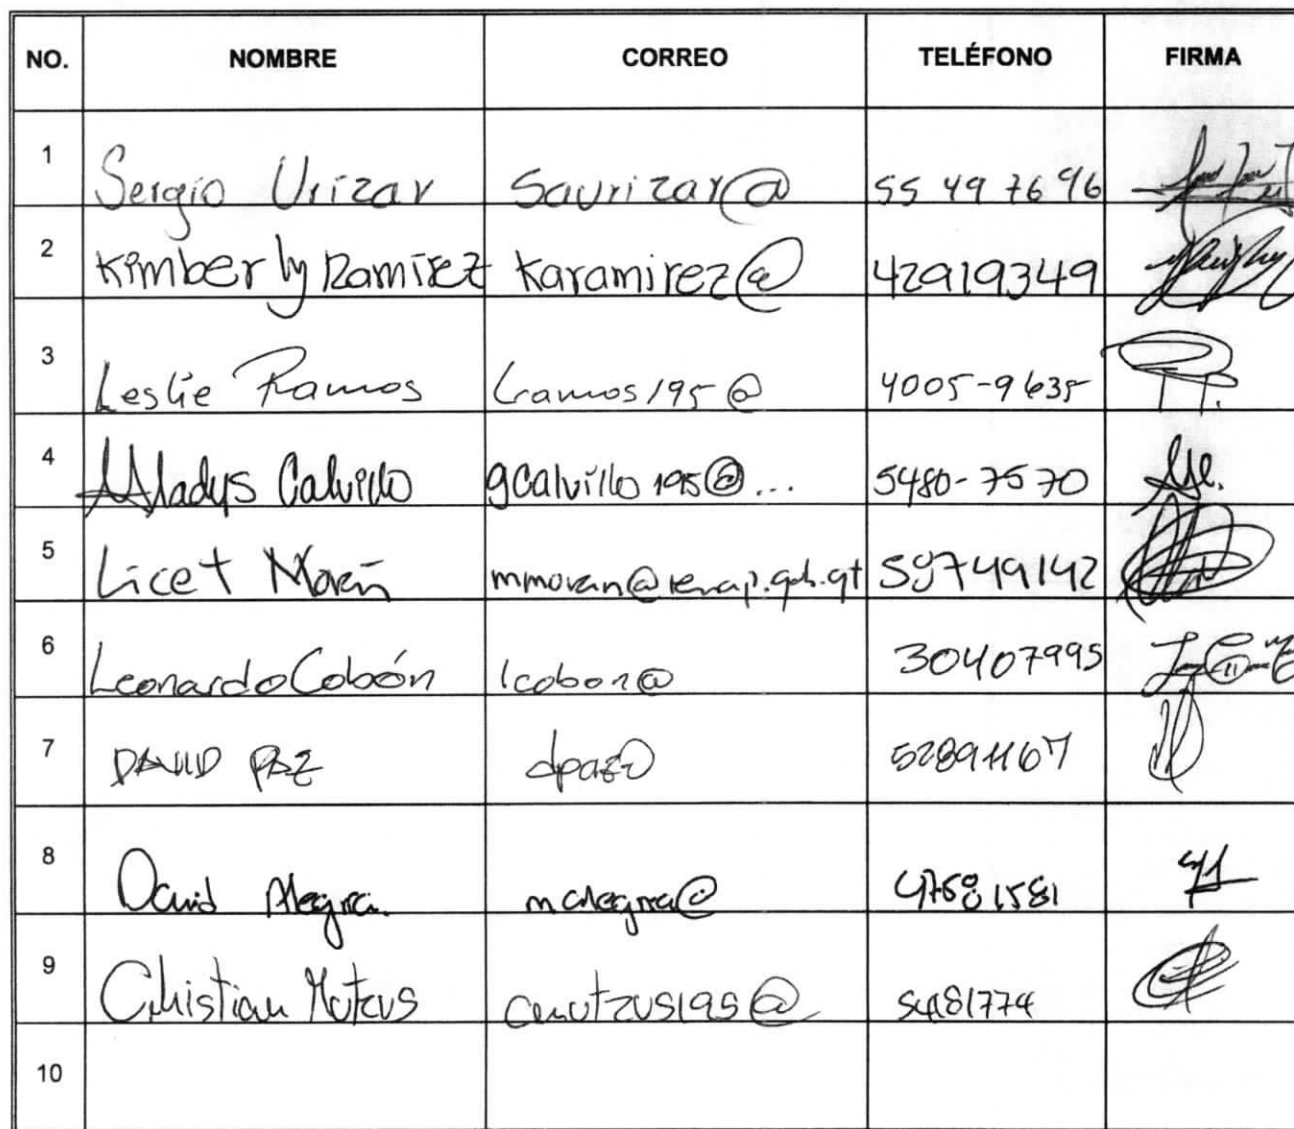 NO. NOMBRE CORREO TELÉFONO FIRMA
1 Sergio Urizar Saurizar@ 55 49 76 96
2 Kimberly Ramírez Karamirez@ 42919349
3 Leslie Ramos lramos195@ 4005-9635
4 Gladys Calvillo gcalvillo195@... 5480-7570
5 Licet Morán mmoran@renap.gob.gt 59749142
6 Leonardo Cobón lcobon@ 30407995
7 DAVID PAZ dpaz@
8 David Alegria malegria@ 47581581
9 Christian
10